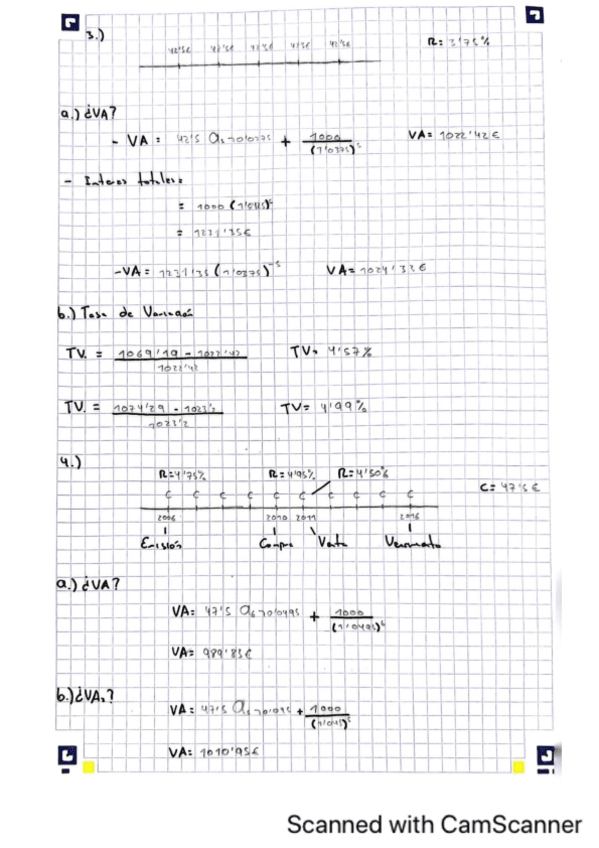 3.)
42'5€ 42'5€ 42'5€ 42'5€ 42'5€ R= 3'75%
a.) ¿VA?
- VA = 42'5 a5¬0'0375 + 1000/(1'0375)^5 VA= 1022'42€
- Interes totales=
= 1000 (1'0425)^5
= 1231'35€
-VA= 1231'35 (1'0375)^-5 VA= 1024'33€
b.) Tasa de Variación
TV. = 1069'19 - 1022'42/1022'42 TV= 4'57%
TV. = 1074'29 - 1023'2/1023'2 TV= 4'99%
4.)
R=4'75% R=4'95% R=4'50% C= 47'5€
C C C C C C C C C C
2006 2010 2011 2016
Emisión Compra Venta Vencimiento
a.) ¿VA?
VA= 47'5 a6¬0'0495 + 1000/(1'0495)^6
VA= 989'83€
b.) ¿VA?
VA= 47'5 a5¬0'045 + 1000/(1'045)^5
VA= 1010'95€
Scanned with CamScanner